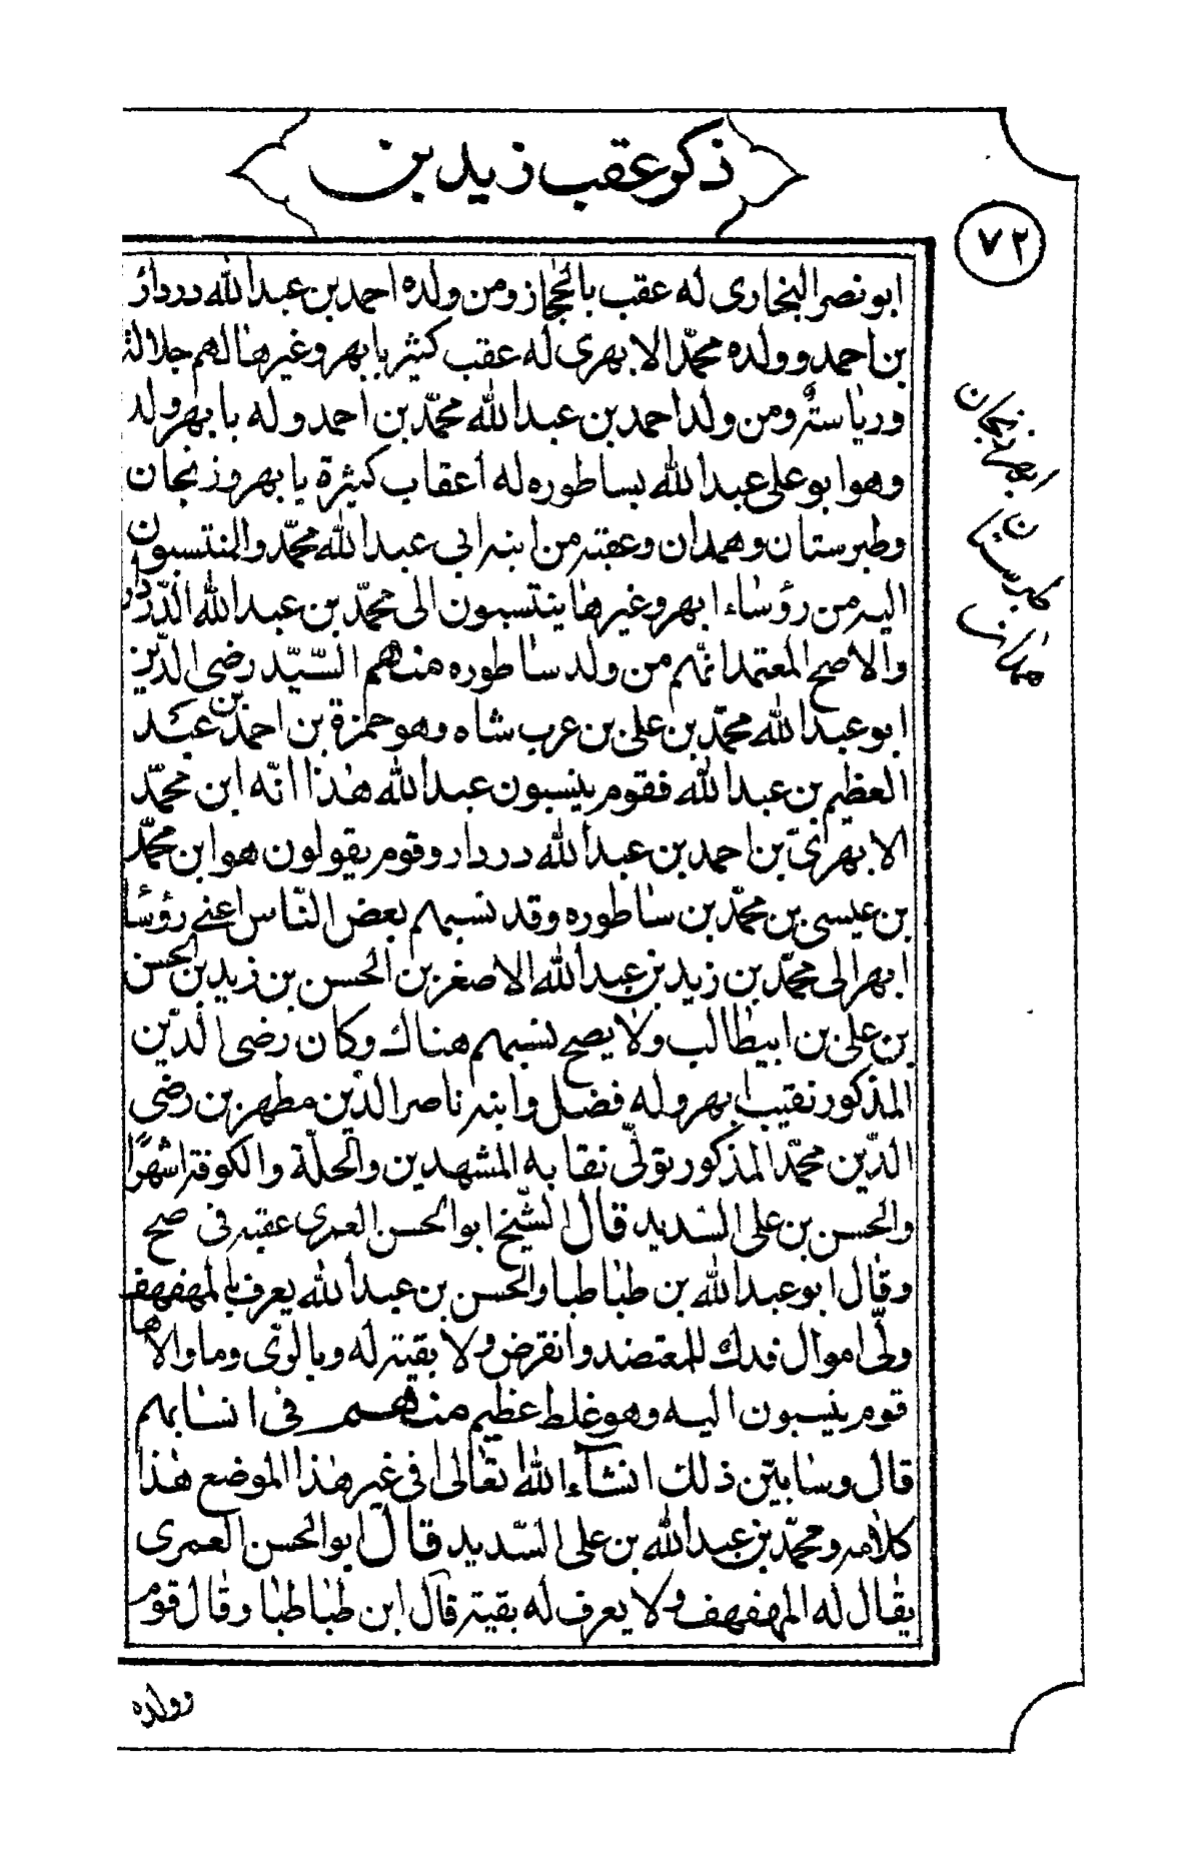 ذكر عقب زيد بن
٧٢
ابو نصر البخارى له عقب بالحجاز ومن ولده احمد بن عبد الله دردار
بن احمد وولده محمّد الابهرى له عقب كثير بابهر وغيرها لهم جلالة
ورياسة ومن ولد احمد بن عبد الله محمّد بن احمد وله بابهر ولد
وهو ابو على عبد الله بساطوره له أعقاب كثيرة بابهر وزنجان
وطبرستان وهمدان وعقبه من ابنه ابى عبد الله محمّد والمنتسبون
اليه من رؤساء ابهر وغيرها ينتسبون الى محمّد بن عبد الله الدّردار
والاصح المعتمد انّهم من ولد ساطوره منهم السّيّد رضى الدّين
ابو عبد الله محمّد بن على بن عرب شاه وهو حمزة بن احمد بن عبد
العظيم بن عبد الله فقوم ينسبون عبد الله هذا انّه ابن محمّد
الابهرىّ بن احمد بن عبد الله دردار وقوم يقولون هو ابن محمّد
بن عيسى بن محمّد بن ساطوره وقد نسبهم بعض النّاس اعنى رؤساء
ابهر الى محمّد بن زيد بن عبد الله الاصغر بن الحسن بن زيد بن الحسن
بن على بن ابيطالب ولا يصح نسبهم هناك وكان رضى الدّين
المذكور نقيب ابهر وله فضل وابنه ناصر الدّين مطهر بن رضى
الدّين محمّد المذكور تولّى نقابة المشهدين والحلّة والكوفة اشهرًا
والحسن بن على السّديد قال الشّيخ ابو الحسن العمرى عقبه فى صح
وقال ابو عبد الله بن طباطبا والحسن بن عبد الله يعرف بالمهفهف
ولّى اموال فدك للمعتضد وانقرض ولا بقية له وبالرّى وما والاها
قوم ينسبون اليه وهو غلط عظيم منهم فى انسابهم
قال وسابيّن ذلك انشآء الله تعالى فى غير هذا الموضع هذا
كلامه ومحمّد بن عبد الله بن على السّديد قال ابو الحسن العمرى
يقال له المهفهف ولا يعرف له بقية قال ابن طباطبا وقال قوم
وولده
ابهر زنجان
طبرستان
همدان